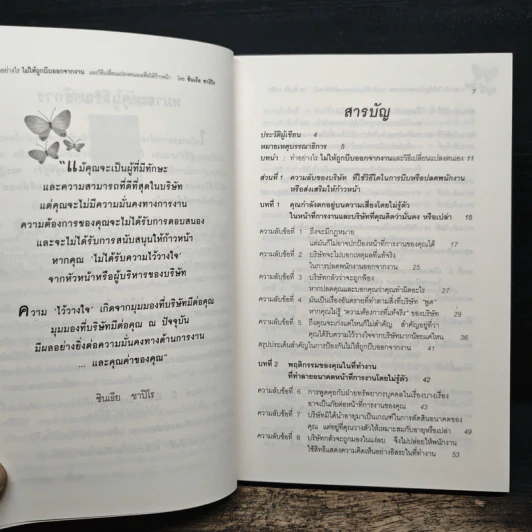 อย่างไร ไม่ให้ถูกบีบออกจากงาน และวิธีเปลี่ยนแปลงตนเองเพื่อให้ก้าวหน้า โดย ซินเธีย ชาปิโร
"แม้คุณจะเป็นผู้ที่มีทักษะ
และความสามารถที่ดีที่สุดในบริษัท
แต่คุณจะไม่มีความมั่นคงทางการงาน
ความต้องการของคุณจะไม่ได้รับการตอบสนอง
และจะไม่ได้รับการสนับสนุนให้ก้าวหน้า
หากคุณ 'ไม่ได้รับความไว้วางใจ'
จากหัวหน้าหรือผู้บริหารของบริษัท
ความ 'ไว้วางใจ' เกิดจากมุมมองที่บริษัทมีต่อคุณ
มุมมองที่บริษัทมีต่อคุณ ณ ปัจจุบัน
มีผลอย่างยิ่งต่อความมั่นคงทางด้านการงาน
... และคุณค่าของคุณ"
ซินเธีย ชาปิโร
7
สารบัญ
ประวัติผู้เขียน 4
หมายเหตุบรรณาธิการ 5
บทนำ : ทำอย่างไร ไม่ให้ถูกบีบออกจากงานและวิธีเปลี่ยนแปลงตนเอง 11
ส่วนที่ 1 ความลับของบริษัท ที่ใช้วิธีใดในการบีบหรือปลดพนักงาน
หรือส่งเสริมให้ก้าวหน้า
บทที่ 1 คุณกำลังตกอยู่บนความเสี่ยงโดยไม่รู้ตัว
ในหน้าที่การงานและบริษัทที่คุณคิดว่ามั่นคง หรือเปล่า 15
ความลับข้อที่ 1 ถึงจะมีกฎหมาย
แต่มันก็ไม่อาจปกป้องหน้าที่การงานของคุณได้ 17
ความลับข้อที่ 2 บริษัทจะไม่บอกเหตุผลที่แท้จริง
ในการปลดพนักงานออกจากงาน 25
ความลับข้อที่ 3 บริษัทกลัวว่าจะถูกฟ้อง
หากปลดคุณและบอกคุณว่าคุณทำผิดอะไร 27
ความลับข้อที่ 4 มันเป็นเรื่องอันตรายที่ทำตามสิ่งที่บริษัท "พูด"
หากคุณไม่รู้ "ความต้องการที่แท้จริง" ของบริษัท 29
ความลับข้อที่ 5 ถึงคุณจะเก่งแค่ไหนก็ไม่สำคัญ สำคัญอยู่ที่ว่า
คุณได้รับความไว้วางใจจากบริษัทมากน้อยแค่ไหน 36
สรุปประเด็นสำคัญในการป้องกันไม่ให้ถูกบีบออกจากงาน 41
บทที่ 2 พฤติกรรมของคุณในที่ทำงาน
ที่ทำลายอนาคตหน้าที่การงานโดยไม่รู้ตัว 42
ความลับข้อที่ 6 การพูดคุยกับฝ่ายทรัพยากรบุคคลในเรื่องบางเรื่อง
อาจเป็นภัยต่อหน้าที่การงานของคุณ 43
ความลับข้อที่ 7 บริษัทมิได้นำอายุมาเป็นเกณฑ์ในการตัดสินอนาคตของ
คุณ แต่อยู่ที่คุณวางตัวให้เหมาะสมกับอายุหรือเปล่า 49
ความลับข้อที่ 8 บริษัทกลัวจะถูกมองในแง่ลบ จึงไม่ปล่อยให้พนักงาน
ใช้สิทธิแสดงความคิดเห็นอย่างอิสระในที่ทำงาน 53